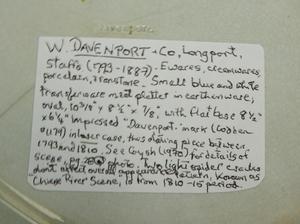 W. DAVENPORT & Co, Longport,
Staffs (1793-1887). E.wares, creamwares,
porcelain, ironstone. Small blue and white
transferware meat platter in earthenware;
oval, 10 3/4" x 8 1/4" x 7/8", with flat base 8 1/2"
x 6 1/4" Impressed "Davenport" mark (Godden
#1179) in lower case, thus dating piece between
1793 and 1810. See Coysh (1970) for details of
scene, pg. photo. Two light spider cracks
don't affect overall appearance. Pattern known as
Chinese River Scene, is from 1810-15 period.